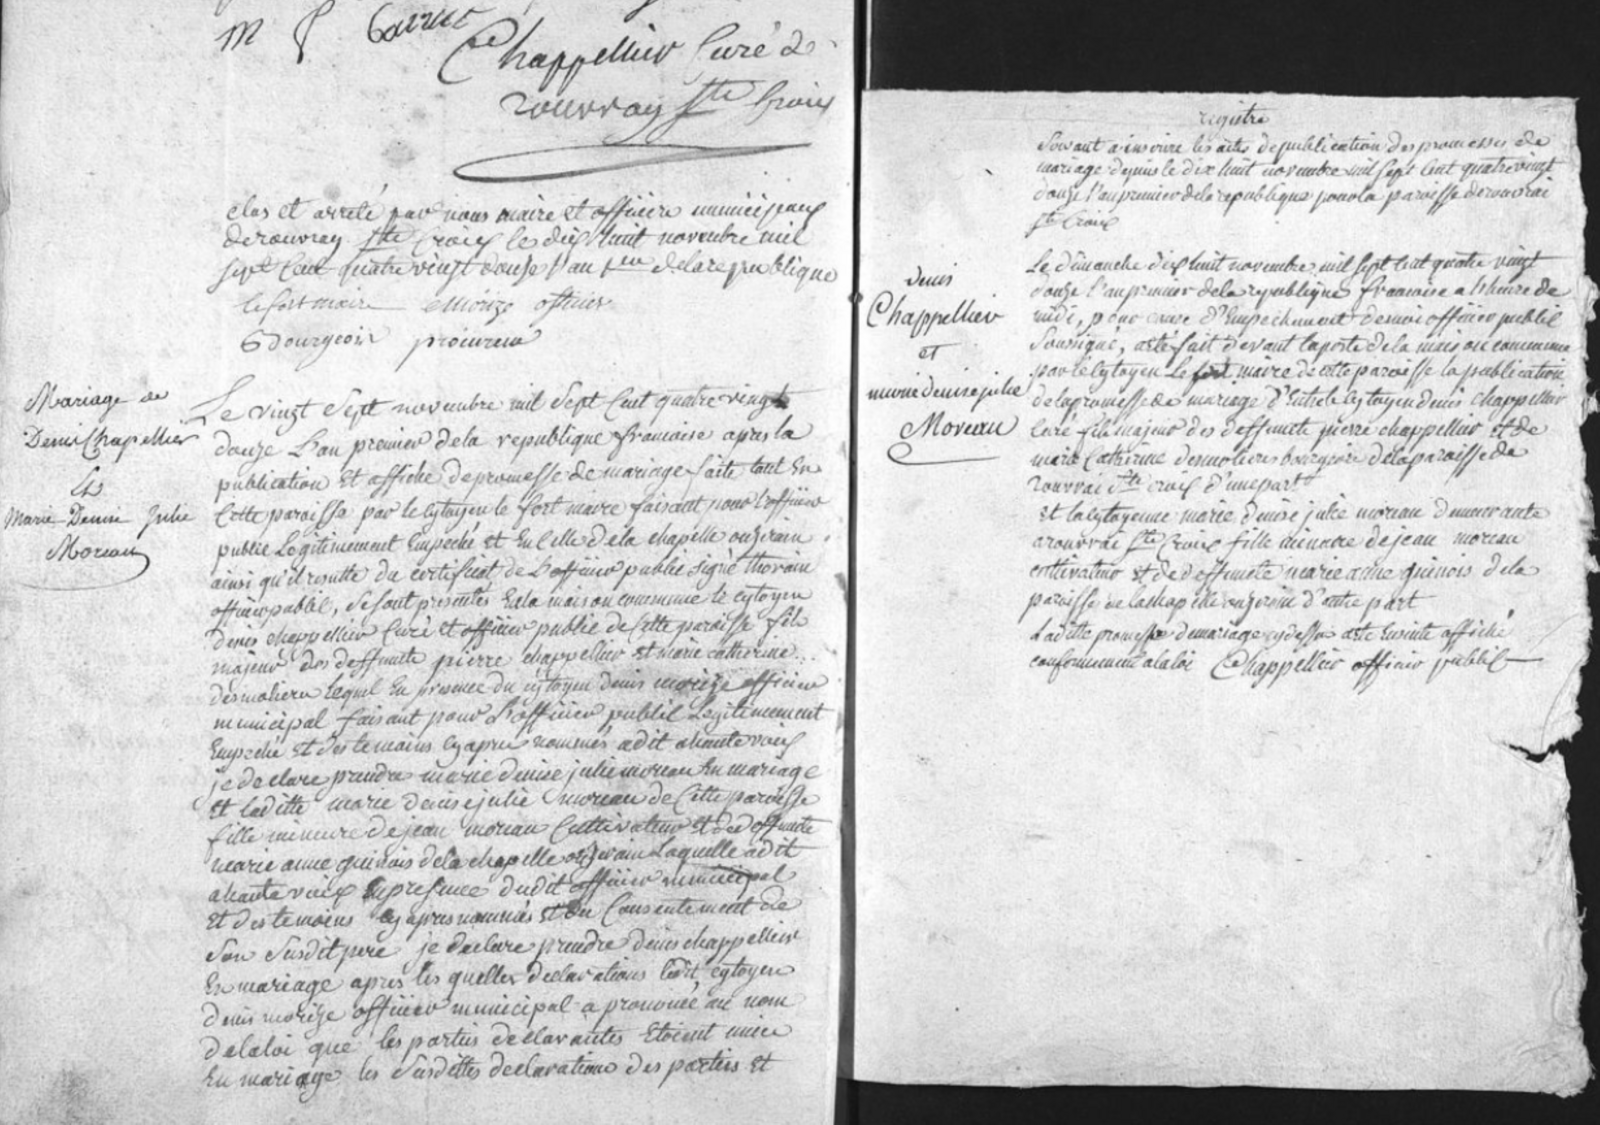 M f Garruet
Chappellier Curé de
rouvray Ste Croix
clos et arrêté par nous maire et officiers municipaux
de rouvray Ste Croix le dix huit novembre mil
sept Cent quatre vingt douze l'an 1er de la republique
lefort maire Morize officier
Bourgeois procureur
Mariage de
Denis Chapellier
Et
Marie Denise Julie
Moreau
Le vingt Sept novembre mil Sept Cent quatre vingt
douze L'an premier de la republique francaise apres la
publication Et affiche de promesse de mariage faite tant En
Cette paroisse par le Cytoyen le fort maire faisant pour l'officier
public Legitimement Empeché et En Celle de la chapelle onzerain
ainsi qu'il resulte du certificat de L'officier public Signé thorain
officier public, Se sont presentés En la maison commune le cytoyen
denis chappellier Curé et officier public de Cette paroisse fils
majeur des deffuncts pierre chappellier et marie catherine
desmoliere Lequel En presence du cytoyen denis morize officier
municipal faisant pour L'officier publil Legitimement
Empeché Et des temoins cy apres nommés a dit a haute voix
je declare prendre marie denise julie moreau En mariage
Et laditte marie denise julie moreau de Cette paroisse
fille mineure de jean moreau Cultivateur Et de deffuncte
marie anne guinois de la chapelle onzerain Laquelle a dit
a haute voix En presence dudit officier municipal
Et des temoins cy apres nommés Et du Consentement de
Son Susdit pere je declare prendre denis chappellier
En mariage apres les quelles declarations ledit cytoyen
denis morize officier municipal a prononcé au nom
de la loi que les parties declarantes Etoient unies
En mariage les Susdittes declarations des parties Et
registre
Servant a inscrire les actes de publication des promesses de
mariage depuis le dix huit novembre mil sept Cent quatre vingt
douze l'an premier de la republique pour la paroisse de rouvrai
Ste Croix
denis
Chappellier
et
marie denise julie
Moreau
Le dimanche dix huit novembre mil sept Cent quatre vingt
douze l'an premier de la republique francaise a l'heure de
midi, pour cause d'Empechement de moi officier publil
Soussigné, a été fait devant la porte de la maison commune
par le Cytoyen Le fort maire de cette paroisse la publication
de la promesse de mariage d'Entre le Cytoyen denis chappellier
Curé fils majeur des deffuncts pierre chappellier et de
marie Catherine desmoliere bourgeois de la paroisse de
rouvrai Ste Croix d'une part
Et la Cytoyenne marie denise julie moreau demeurante
a rouvrai Ste Croix fille mineure de jean moreau
cultivateur et de deffuncte marie anne guinois de la
paroisse de la chapelle onzerain d'autre part
Laditte promesse de mariage cy dessus a été Ensuite affiché
conformement a la loi Chappellier officier publil